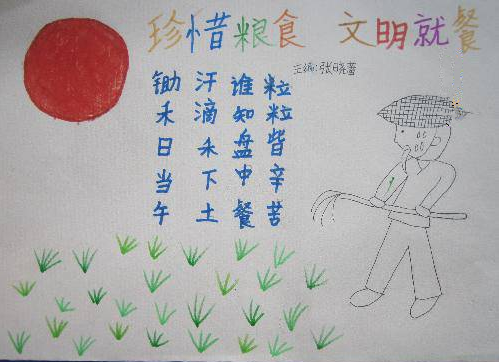 珍惜粮食 文明就餐
主编:张晓
锄禾日当午
汗滴禾下土
谁知盘中餐
粒粒皆辛苦